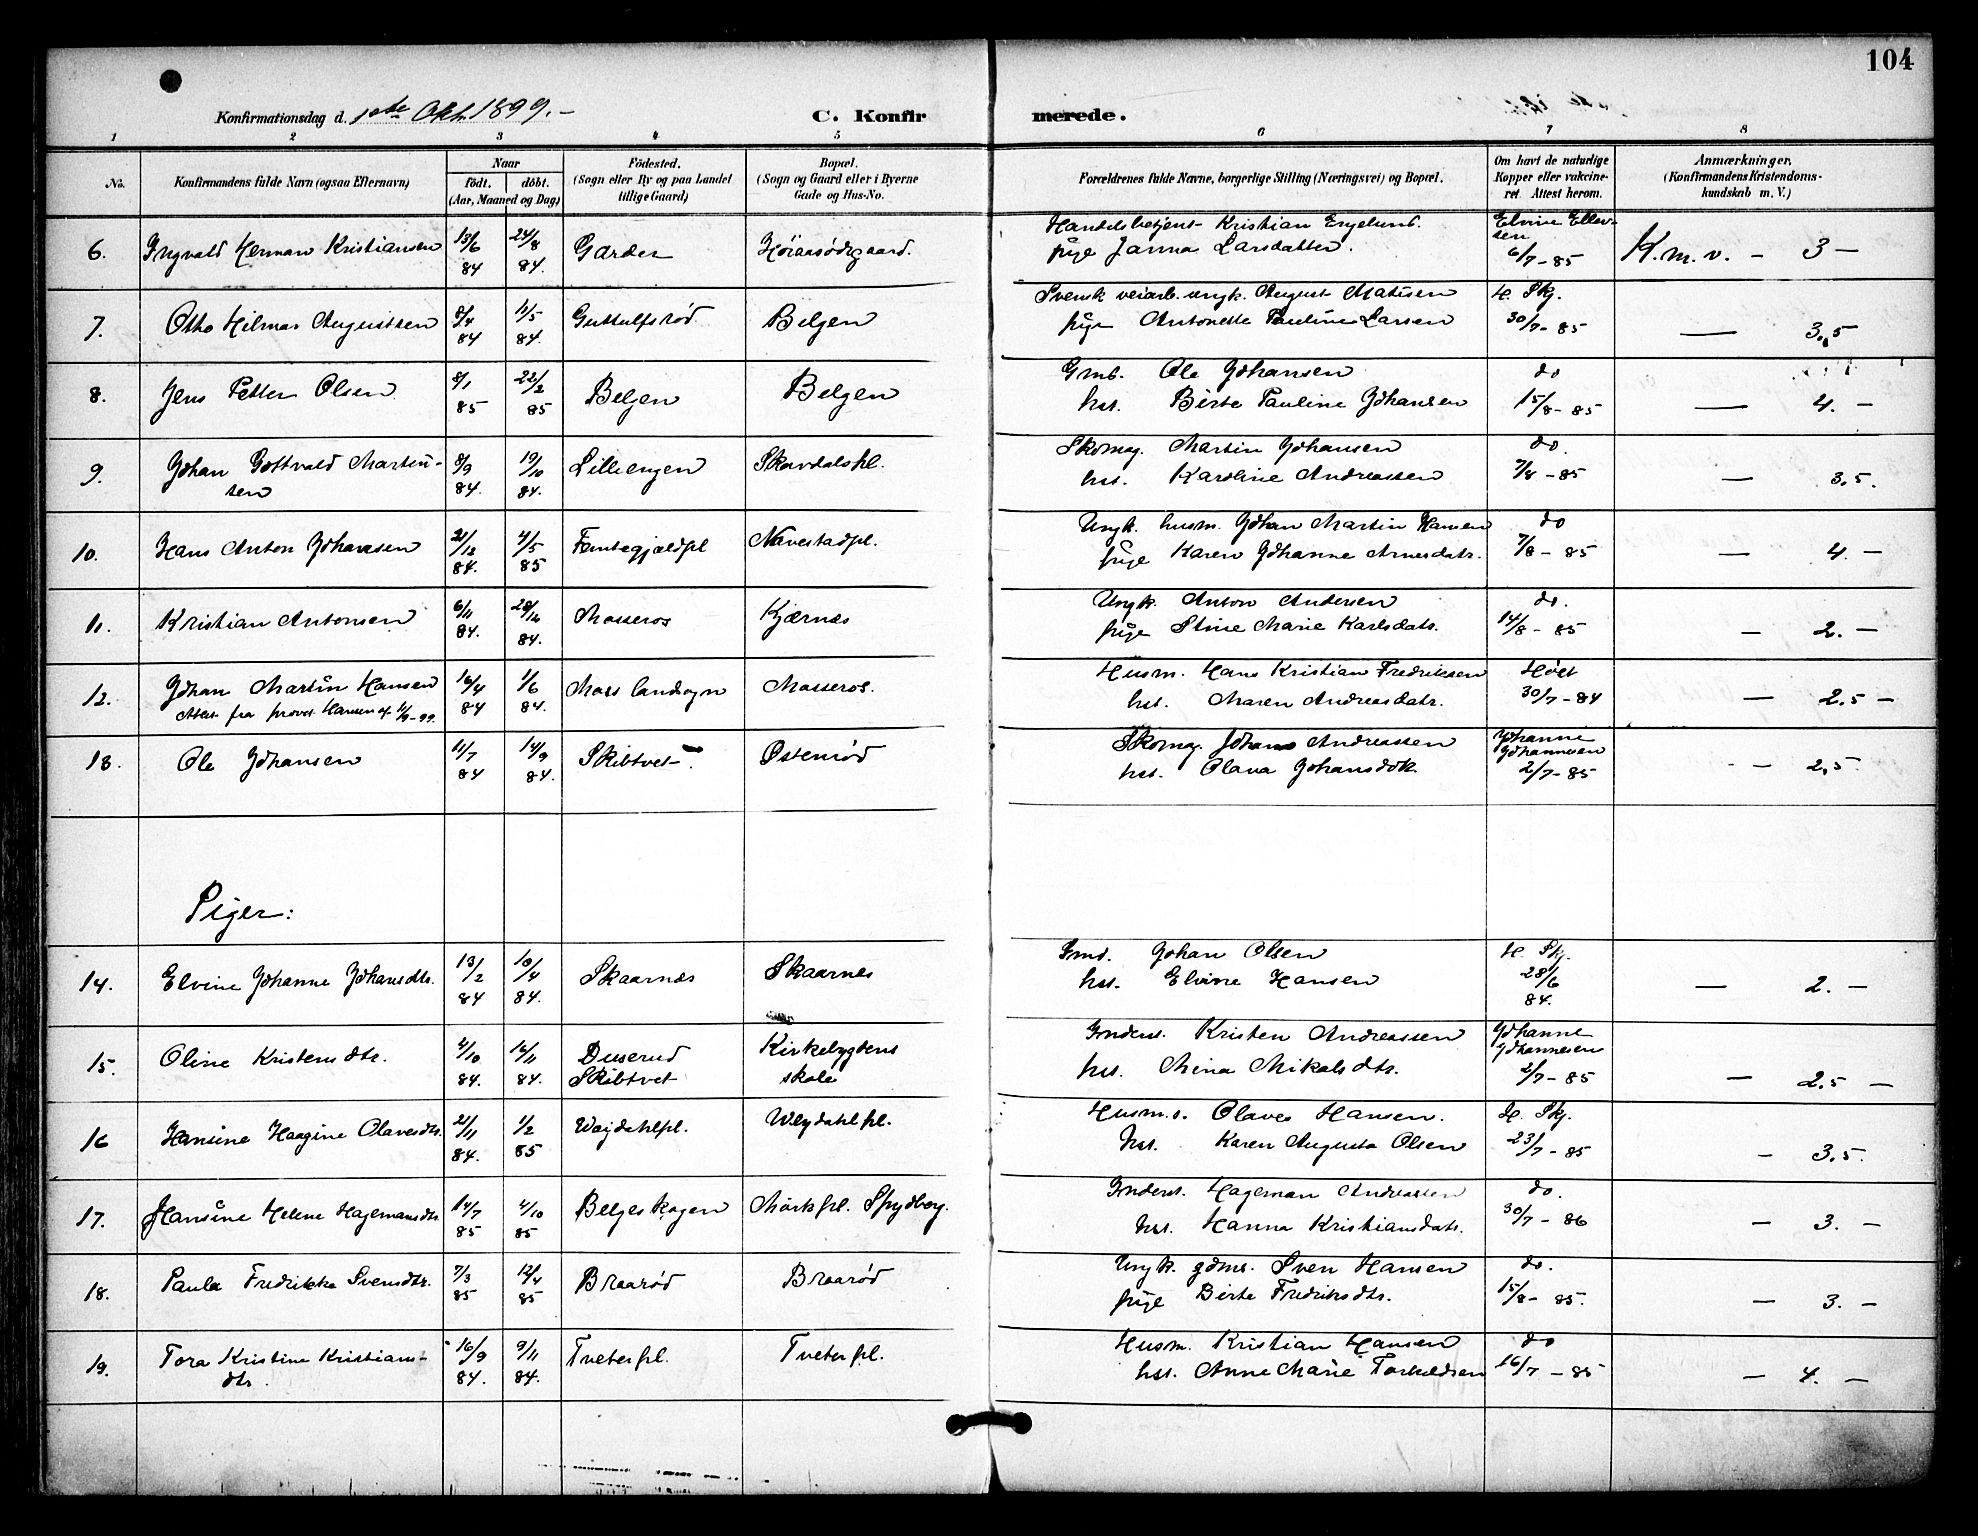 104
Konfirmationsdag d. 1ste Okt. 1899.-
C. Konfirmerede.
1 2 3 4 5 6 7 8
No. Konfirmandens fulde Navn (ogsaa Efternavn) Naar födt. döbt. (Aar, Maaned og Dag) Födested. (Sogn eller By og paa Landet tillige Gaard) Bopæl. (Sogn og Gaard eller i Byerne Gade og Hus-No. Forældrenes fulde Navne, borgerlige Stilling (Næringsvei) og Bopæl. Om havt de naturlige Kopper eller vakcineret. Attest herom. Anmærkninger. (Konfirmandens Kristendomskundskab m. V.)
6. Ingvald Herman Kristiansen 13/6 84 24/8 84. Garder
Handelsbetjent Kristian Engelund. pige Janna Larsdatter. Elvine Ellevsen 6/7-85 K.m.v. - 3 -
7. Otto Hilmar Augustsen 8/4 84 11/5 84. Guttulfsrød Belgen
Svensk veiarb. ungk. August Matisen pige Antonette Pauline Larsen H. Skj. 30/7-85 — 3,5
8. Jens Petter Olsen 8/1 85 22/2 85 Belgen Belgen
Gmb. Ole Johansen hst. Birte Pauline Johansen do 15/8-85 — 4. -
9. Johan Gottvald Martinsen 8/9 84. 19/10 84. Lilleengen Skovdalspl.
Skomag. Martin Johansen hst. Karoline Andreassen do. 7/8-85 — 3,5.
10. Hans Anton Johansen 21/12 84. 4/5 85 Fantegjældpl Navestadpl.
Ungk. husm. Johan Martin Hansen pige Karen Johanne Arnesdatr. do 7/8-85 — 4. -
11. Kristian Antonsen 6/11 84. 28/12 84. Mosseros Kjærnes
Ungk. Anton Andersen pige Stine Marie Karlsdatr. do. 14/8-85 — 2. -
12. Johan Martin Hansen 16/4 84 1/6 84. Moss landsogn Mosseros.
Attest fra provst Hansen af 11/9-99.
Husm. Hans Kristian Fredriksen hst. Maren Andreasdatr. Høst 30/7-84 — 2,5 -
13. Ole Johansen 11/7 84 14/9 84. Skibtvet Østenrød
Skomag. Johans Andreassen hst. Olava Johansdatr. Johanne Johannesen 2/7-85 — 2,5.
Piger:
14. Elvine Johanne Johansdtr. 13/2 84 10/4 84. Skaarnes Skaarnes
Gmd. Johan Olsen hst. Elvine Hansen H. Skj. 28/6 84. — 2. -
15. Oline Kristensdtr. 4/10 84. 16/11 84. Duserud Skibtvet Kirkebygdens skole
Inderst. Kristen Andreassen hst. Mina Mikalsdtr. Johanne Johannesen 2/7-85 — 2,5 -
16 Hansine Haagine Olavesdtr. 21/11 84. 1/2 85 Weydahlpl. Weydahlpl.
Husm.s. Olaves Hansen. hst. Karen Augusta Olsen H. Skj. 23/7-85 — 3,5.
17. Hansine Helene Hagemansdtr. 14/7 85 4/10 85 Belgeskogen Mörkpl. Spydberg.
Inderst. Hageman Andreassen hst. Hanna Kristiansdatr. do. 30/7-86 — 3. -
18. Paula Fredrikke Svensdtr. 7/3 85 12/4 85 Braarød Braarød
Ungk. gdms. Sven Hansen pige Birte Fredriksdtr. do. 15/8-85. — 3. -
19. Tora Kristine Kristiansdtr. 16/9 84. 9/11 84. Tveterpl. Tveterpl.
Husm. Kristian Hansen hst. Anne Marie Torkeldsen do 16/7-85 — 4. -